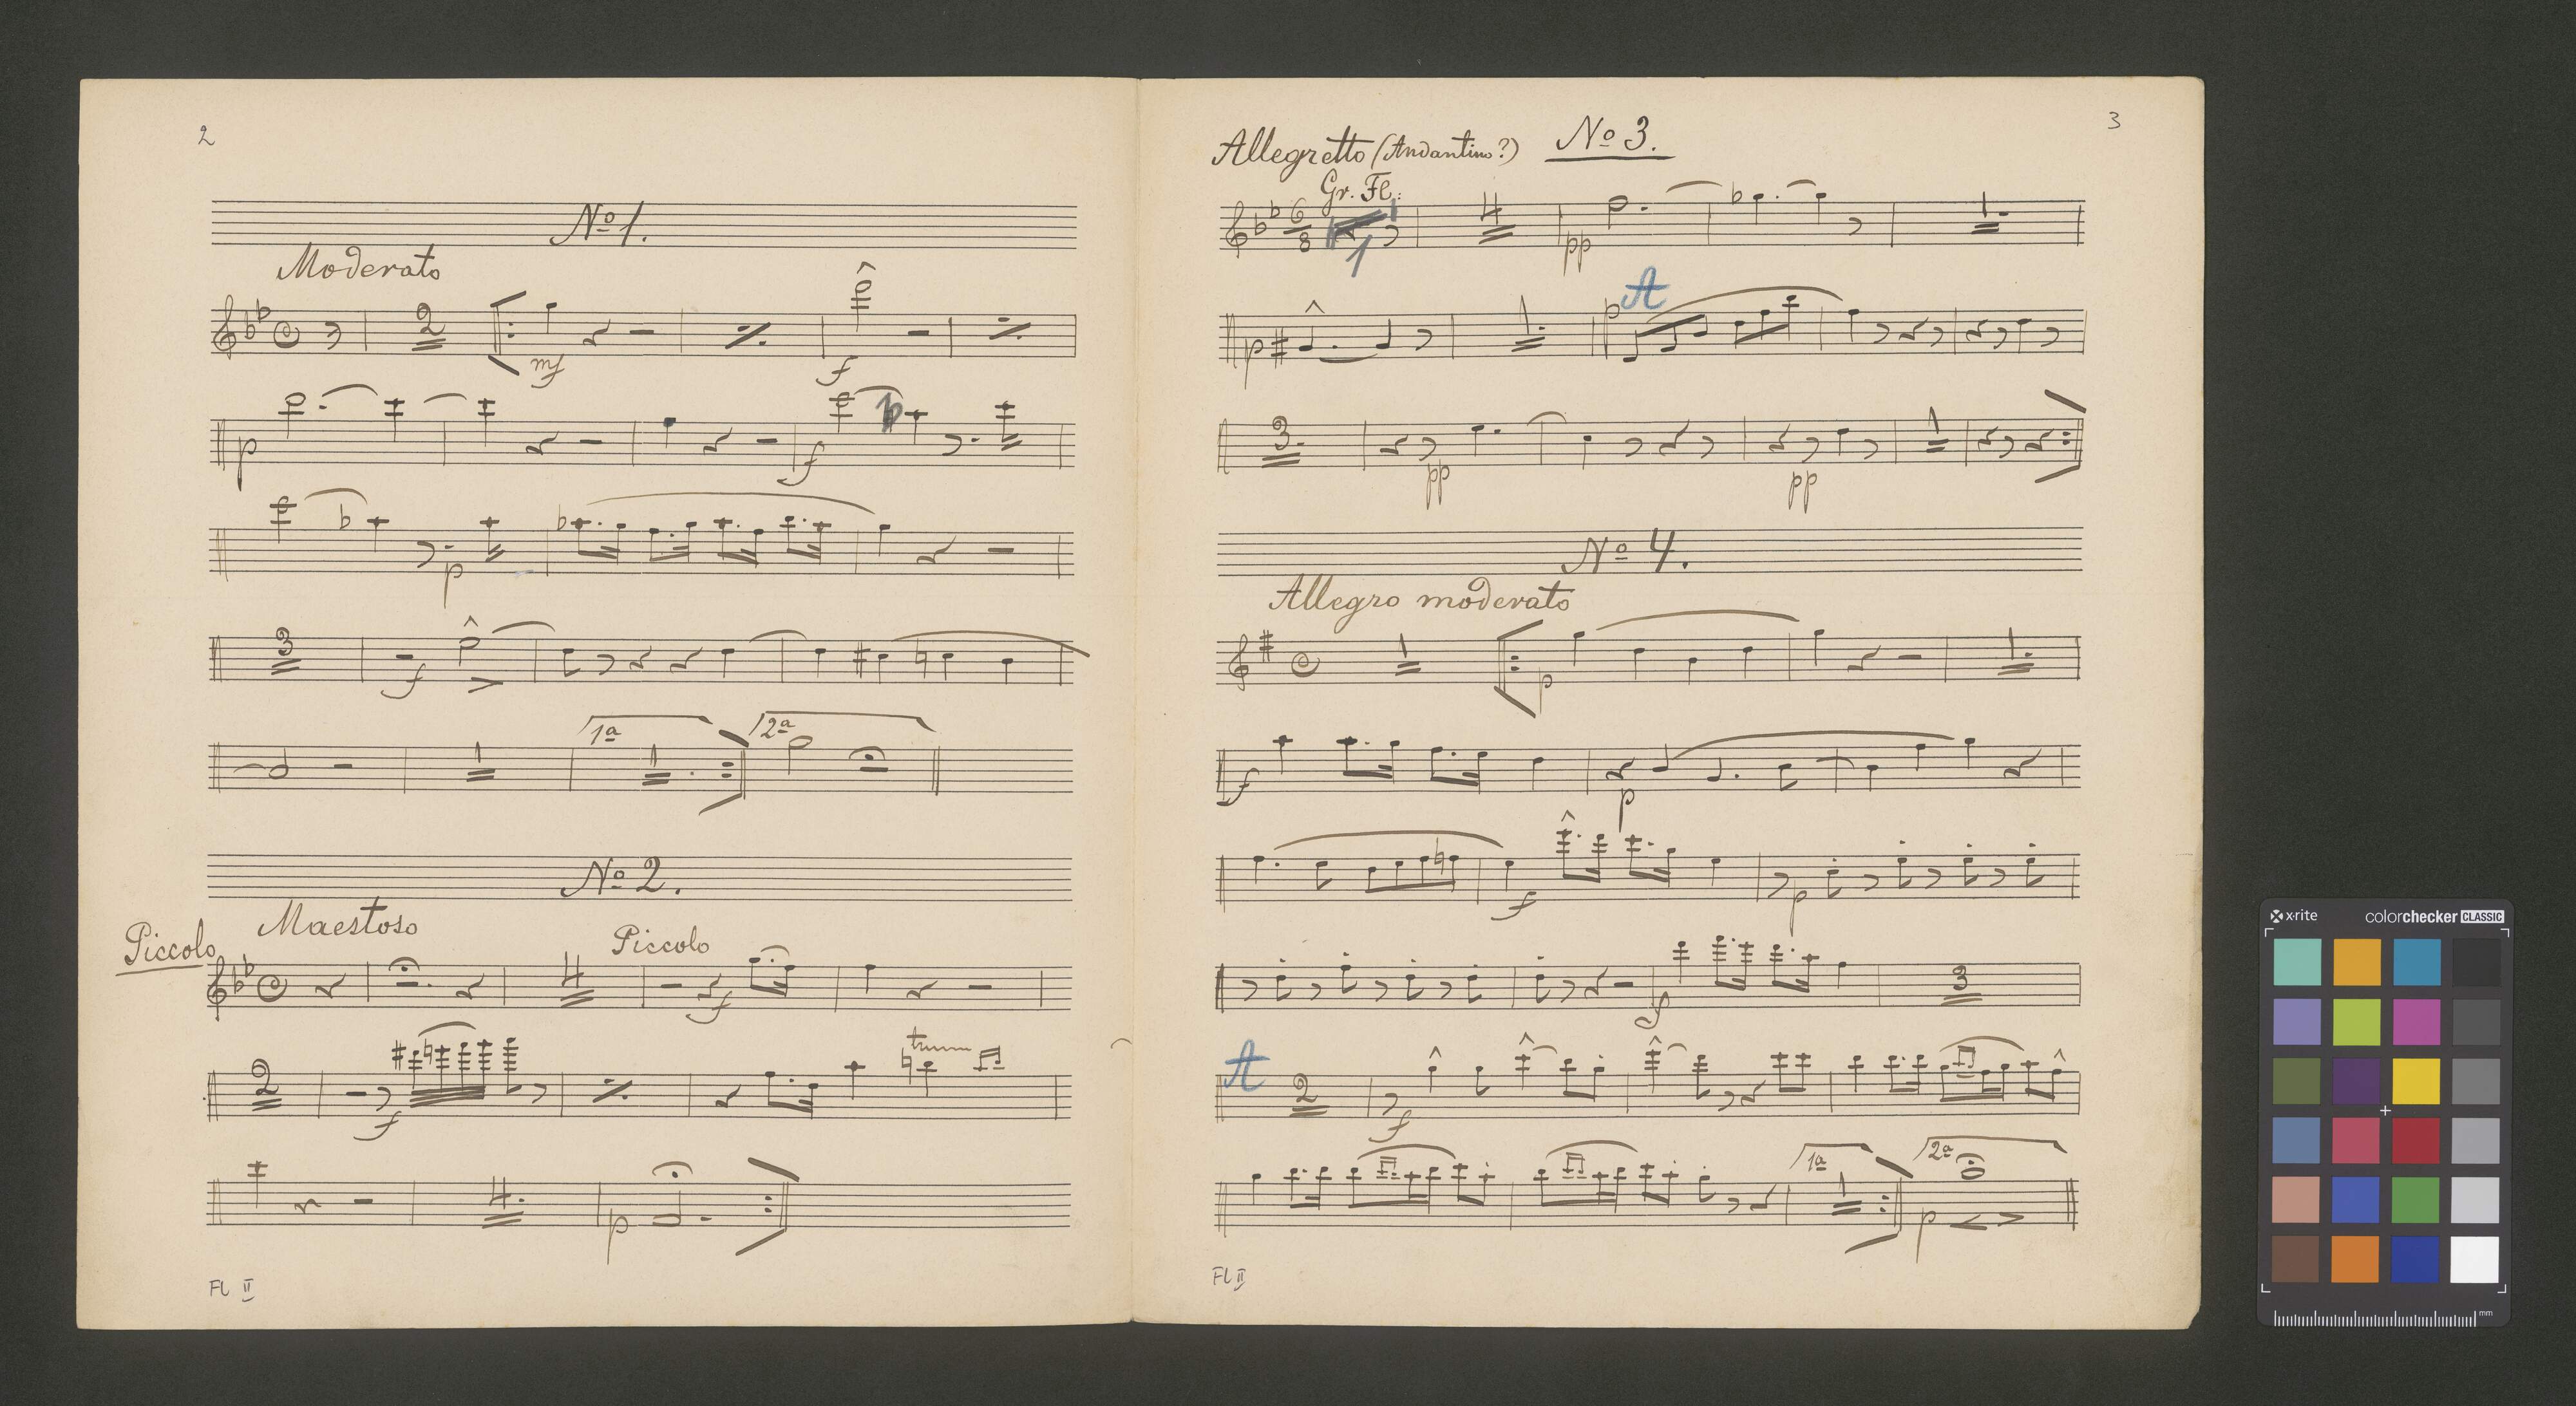 2
No 1.
Moderato
2
mf
f
p
f
p
3
f
1a
2a
No 2.
Maestoso
Piccolo
Piccolo
4
f
2
f
trmmm
1
4
p
Fl II
3
Allegretto (Andantino?) No 3.
Gr. Fl:
6
8
1
4
pp
1
A
p
1
3
pp
pp
1
No 4.
Allegro moderato
1
p
1
f
p
f
p
f
3
A
2
f
1a
2a
1
p
Fl II
x·rite colorchecker CLASSIC
mm